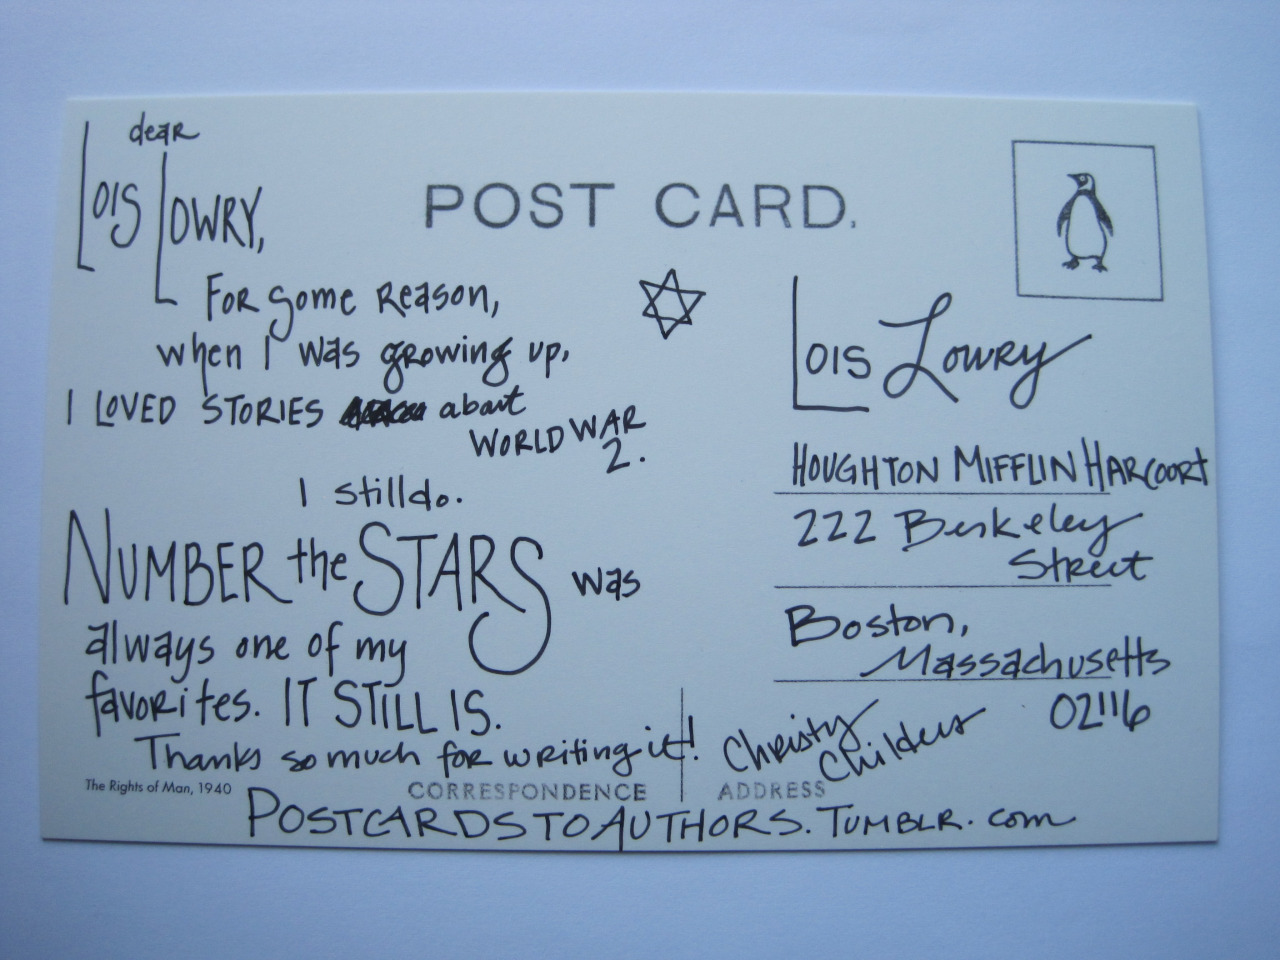 dear
Lois Lowry,
For some reason,
when I was growing up,
I loved stories about
World War
2.
I still do.
Number the Stars was
always one of my
favorites. It still is.
Thanks so much for writing it!
Christy
Childers
The Rights of Man, 1940
CORRESPONDENCE
ADDRESS
PostcardsToAuthors.Tumblr.com
POST CARD.
Lois Lowry
Houghton Mifflin Harcourt
222 Berkeley
Street
Boston,
Massachusetts
02116